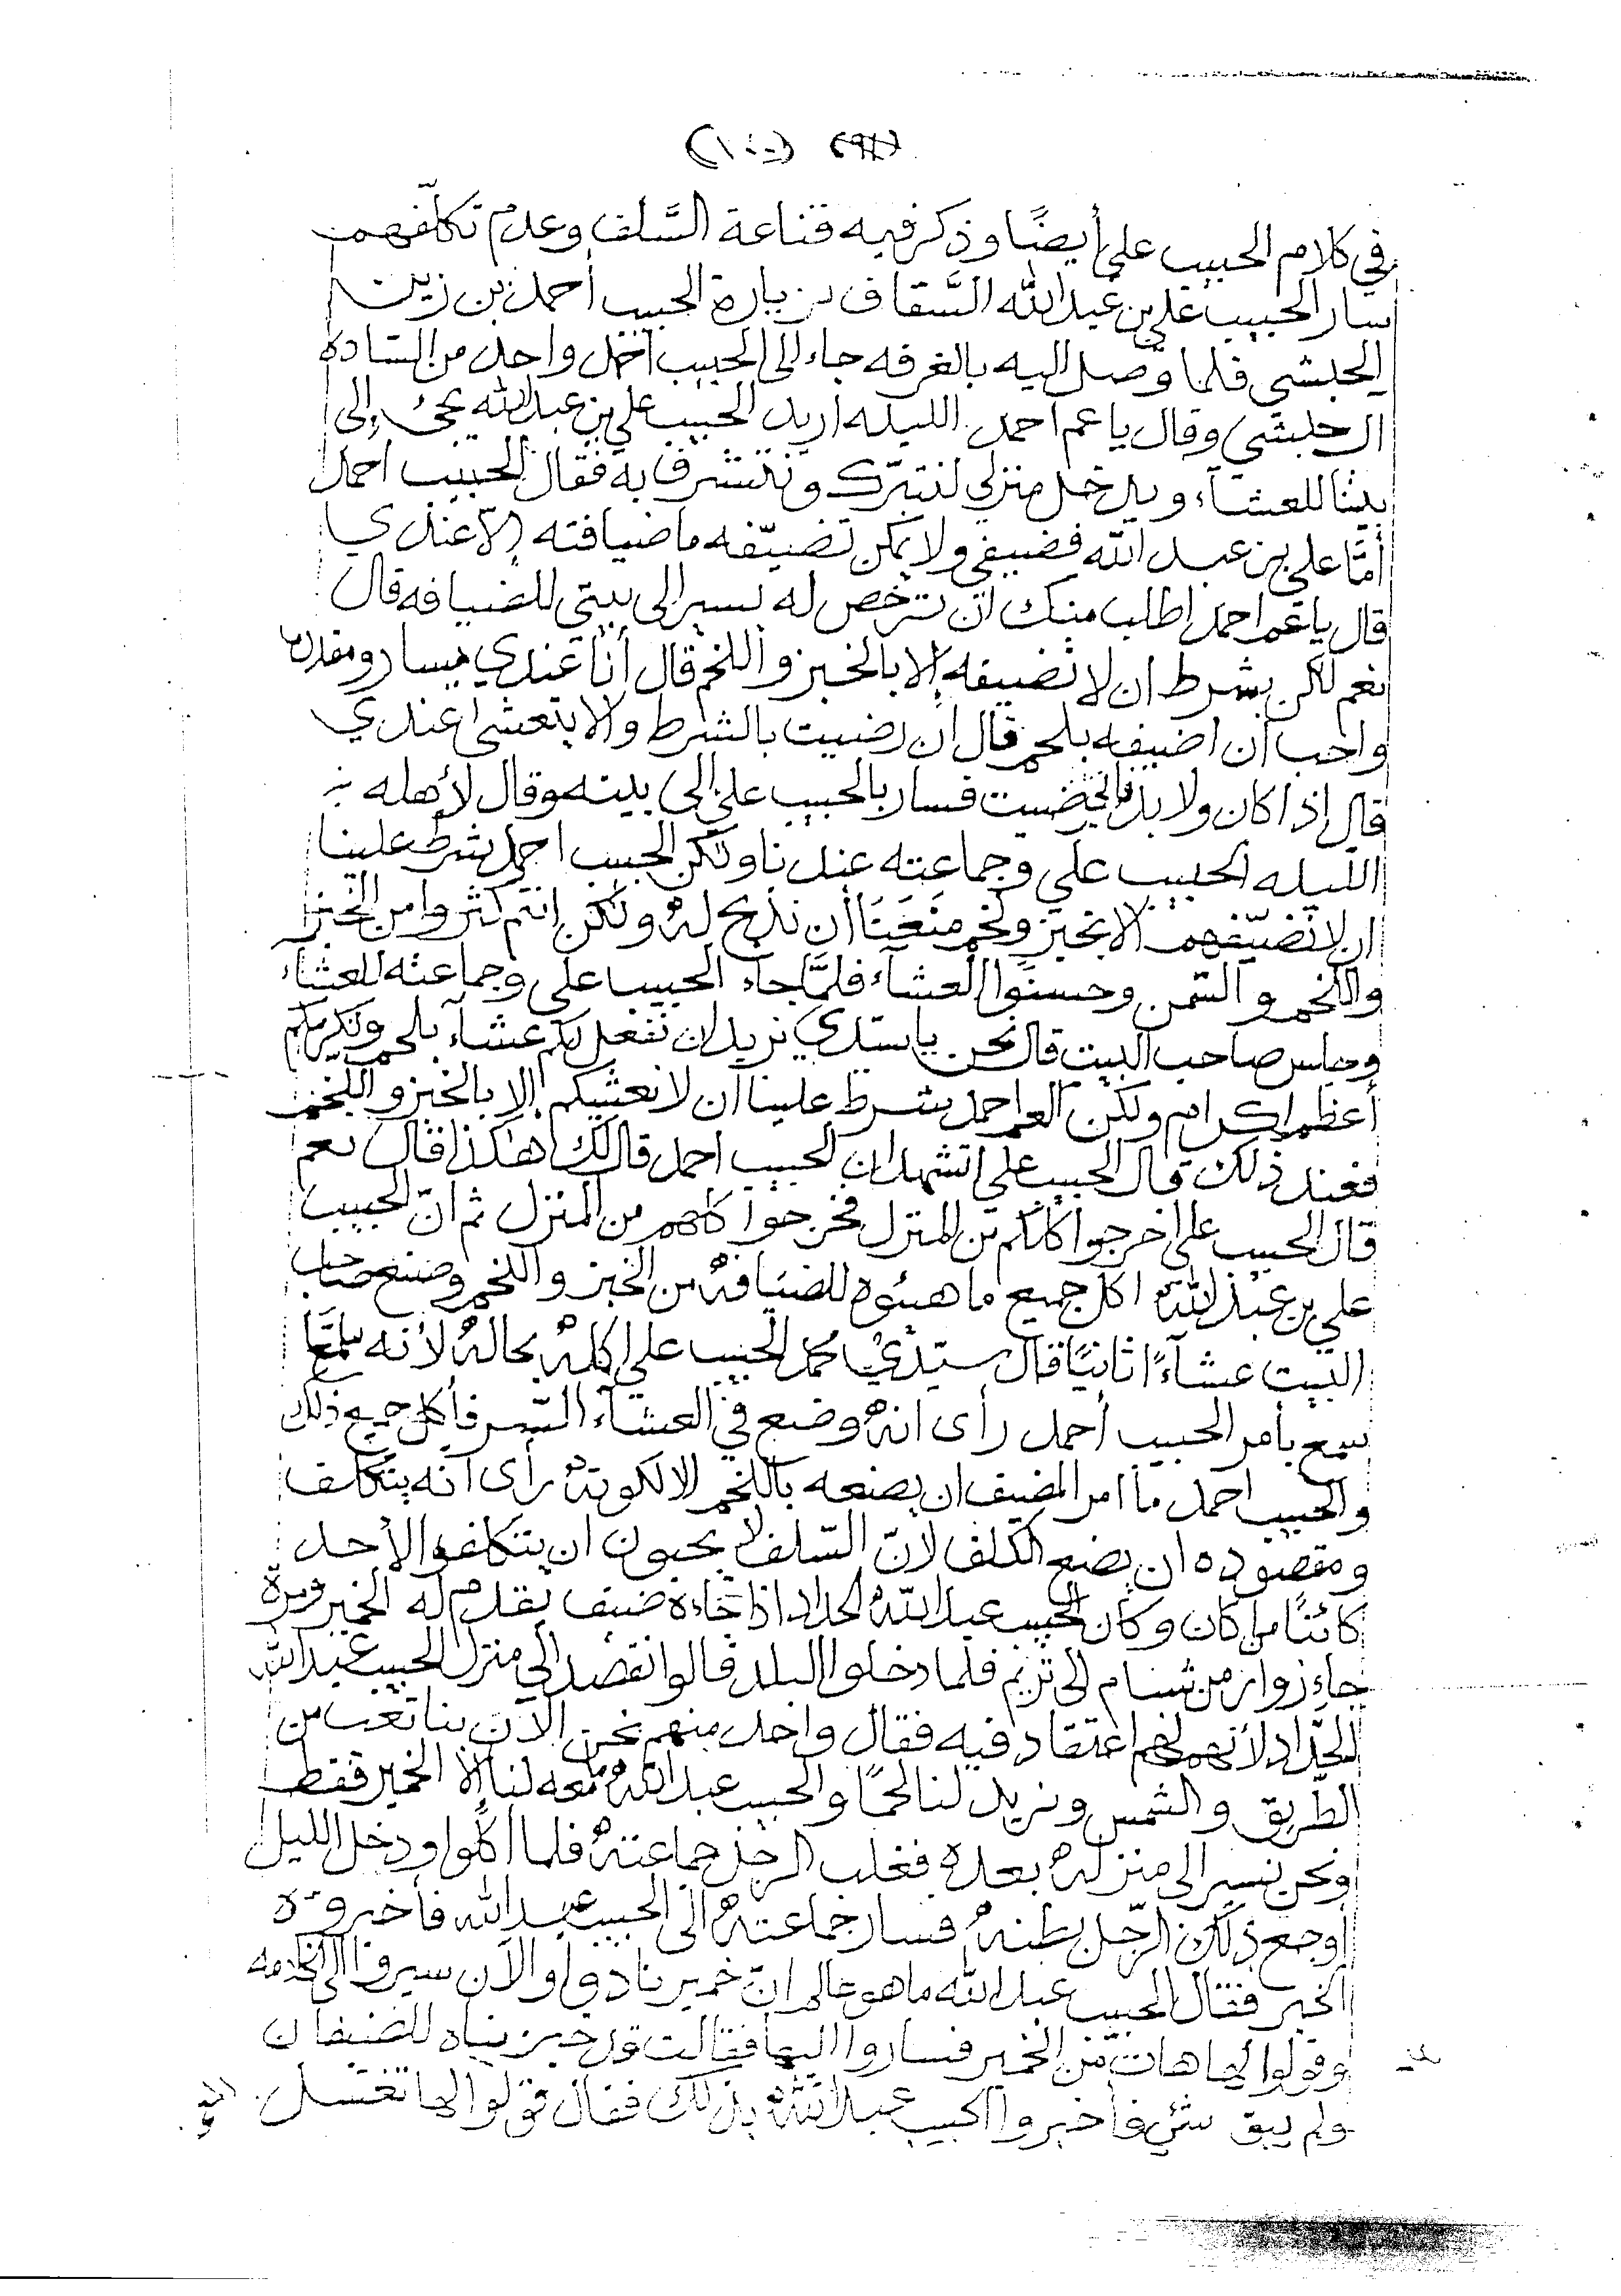 (١٠٠)
في كلام الحبيب علي أيضًا وذكر فيه قناعة السَّلف وعدم تكلّفهم
سار الحبيب علي بن عبدالله السَّقاف لزيارة الحبيب أحمد بن زين
الحبشي فلما وصل اليه بالغرفه جاء الى الحبيب احمد واحد من الساده
ال حبشي وقال يا عم احمد الليله اريد الحبيب علي بن عبدالله يجئ إلى
بيتنا للعشاء ويدخل منزلي لنتبرّك ونتشرف به فقال الحبيب احمد
أمّا علي بن عبد الله فضيفي ولا يمكن تضيّفه ما ضيافته إلا عندي
قال يا عم احمد اطلب منك ان ترخص له يسير الى بيتي للضيافه قال
نعم لكن بشرط ان لا تضيفه إلا بالخبز واللخم قال أنا عندي يسار ومقدره
واحب أن اضيفه بلحم قال ان رضيت بالشرط والا يتعشى عندي
قال إذا كان ولا بد رضيت فسار بالحبيب علي الى بيته وقال لأهله
الليله الحبيب علي وجماعته عندنا ولكن الحبيب احمد شرط علينا
ان لا نضيّفهم الا بخبز ولخم مَنَعَنَا أن نذبح لهُ ولكن انتم كثروا من الخبز
واللخم والسّمن وحسنوا العشآء فلمَّا جاء الحبيب علي وجماعته للعشاء
وجلس صاحب البيت قال نحن يا سيّدي نريد ان نفعل لكم عشآء بلحم ونكرمكم
أعظم اكرام ولكن العم احمد شرط علينا ان لا نعشيكم إلا بالخبز واللخم
فعند ذلك قال الحبيب علي اتشهد ان الحبيب احمد قال لك هكذا قال نعم
قال الحبيب علي اخرجوا كلكم من المنزل فخرجوا كلهم من المنزل ثم انّ الحبيب
علي بن عبدالله اكل جميع ما هيئوه للضيافة من الخبز واللخم وصنع صاحب
البيت عشآءً ثانيًا قال سيّدي محمد الحبيب علي اكلهُ بحالهُ لأنه لمّا
سمع بأمر الحبيب أحمد رأى انهُ وضع في العشآء السّر فأكل جميع ذلك
والحبيب احمد ما امر المضيف ان يصنعه باللخم الا لكونهُ رأى أنه يتكلف
ومقصوده ان يضع الكلف لانّ السّلف لا يحبون ان يتكلفوا لأحد
كائنًا من كان وكان الحبيب عبدالله الحداد اذا جاءه ضيف يقدم له الخمير ومرة
جاء زوار من شبام الى تريم فلما دخلوا البلد قالوا نقصد الى منزل الحبيب عبدالله
الحدّاد لأنهم لهم اعتقاد فيه فقال واحد منهم نحن الآن بنا تعب من
الطريق والشمس ونريد لنا لحمًا والحبيب عبدالله ما معه لنا إلا الخمير فقط
ونحن نسير الى منزلهُ بعده فغلب الرجل جماعتهُ فلما اكلوا ودخل الليل
أوجع ذلك الرّجل بطنهُ فسار جماعتهُ الى الحبيب عبدالله فأخبروه
الخبر فقال الحبيب عبدالله ما هو عالم انّ خميرنا دوا والآن سيروا الى الخادمه
وقولوا لها هات من الخمير فساروا اليها فقالت قد خبزيناه للضيفان
ولم يبق شئ فأخبروا الحبيب عبدالله بذلك فقال قولوا لها تغسل